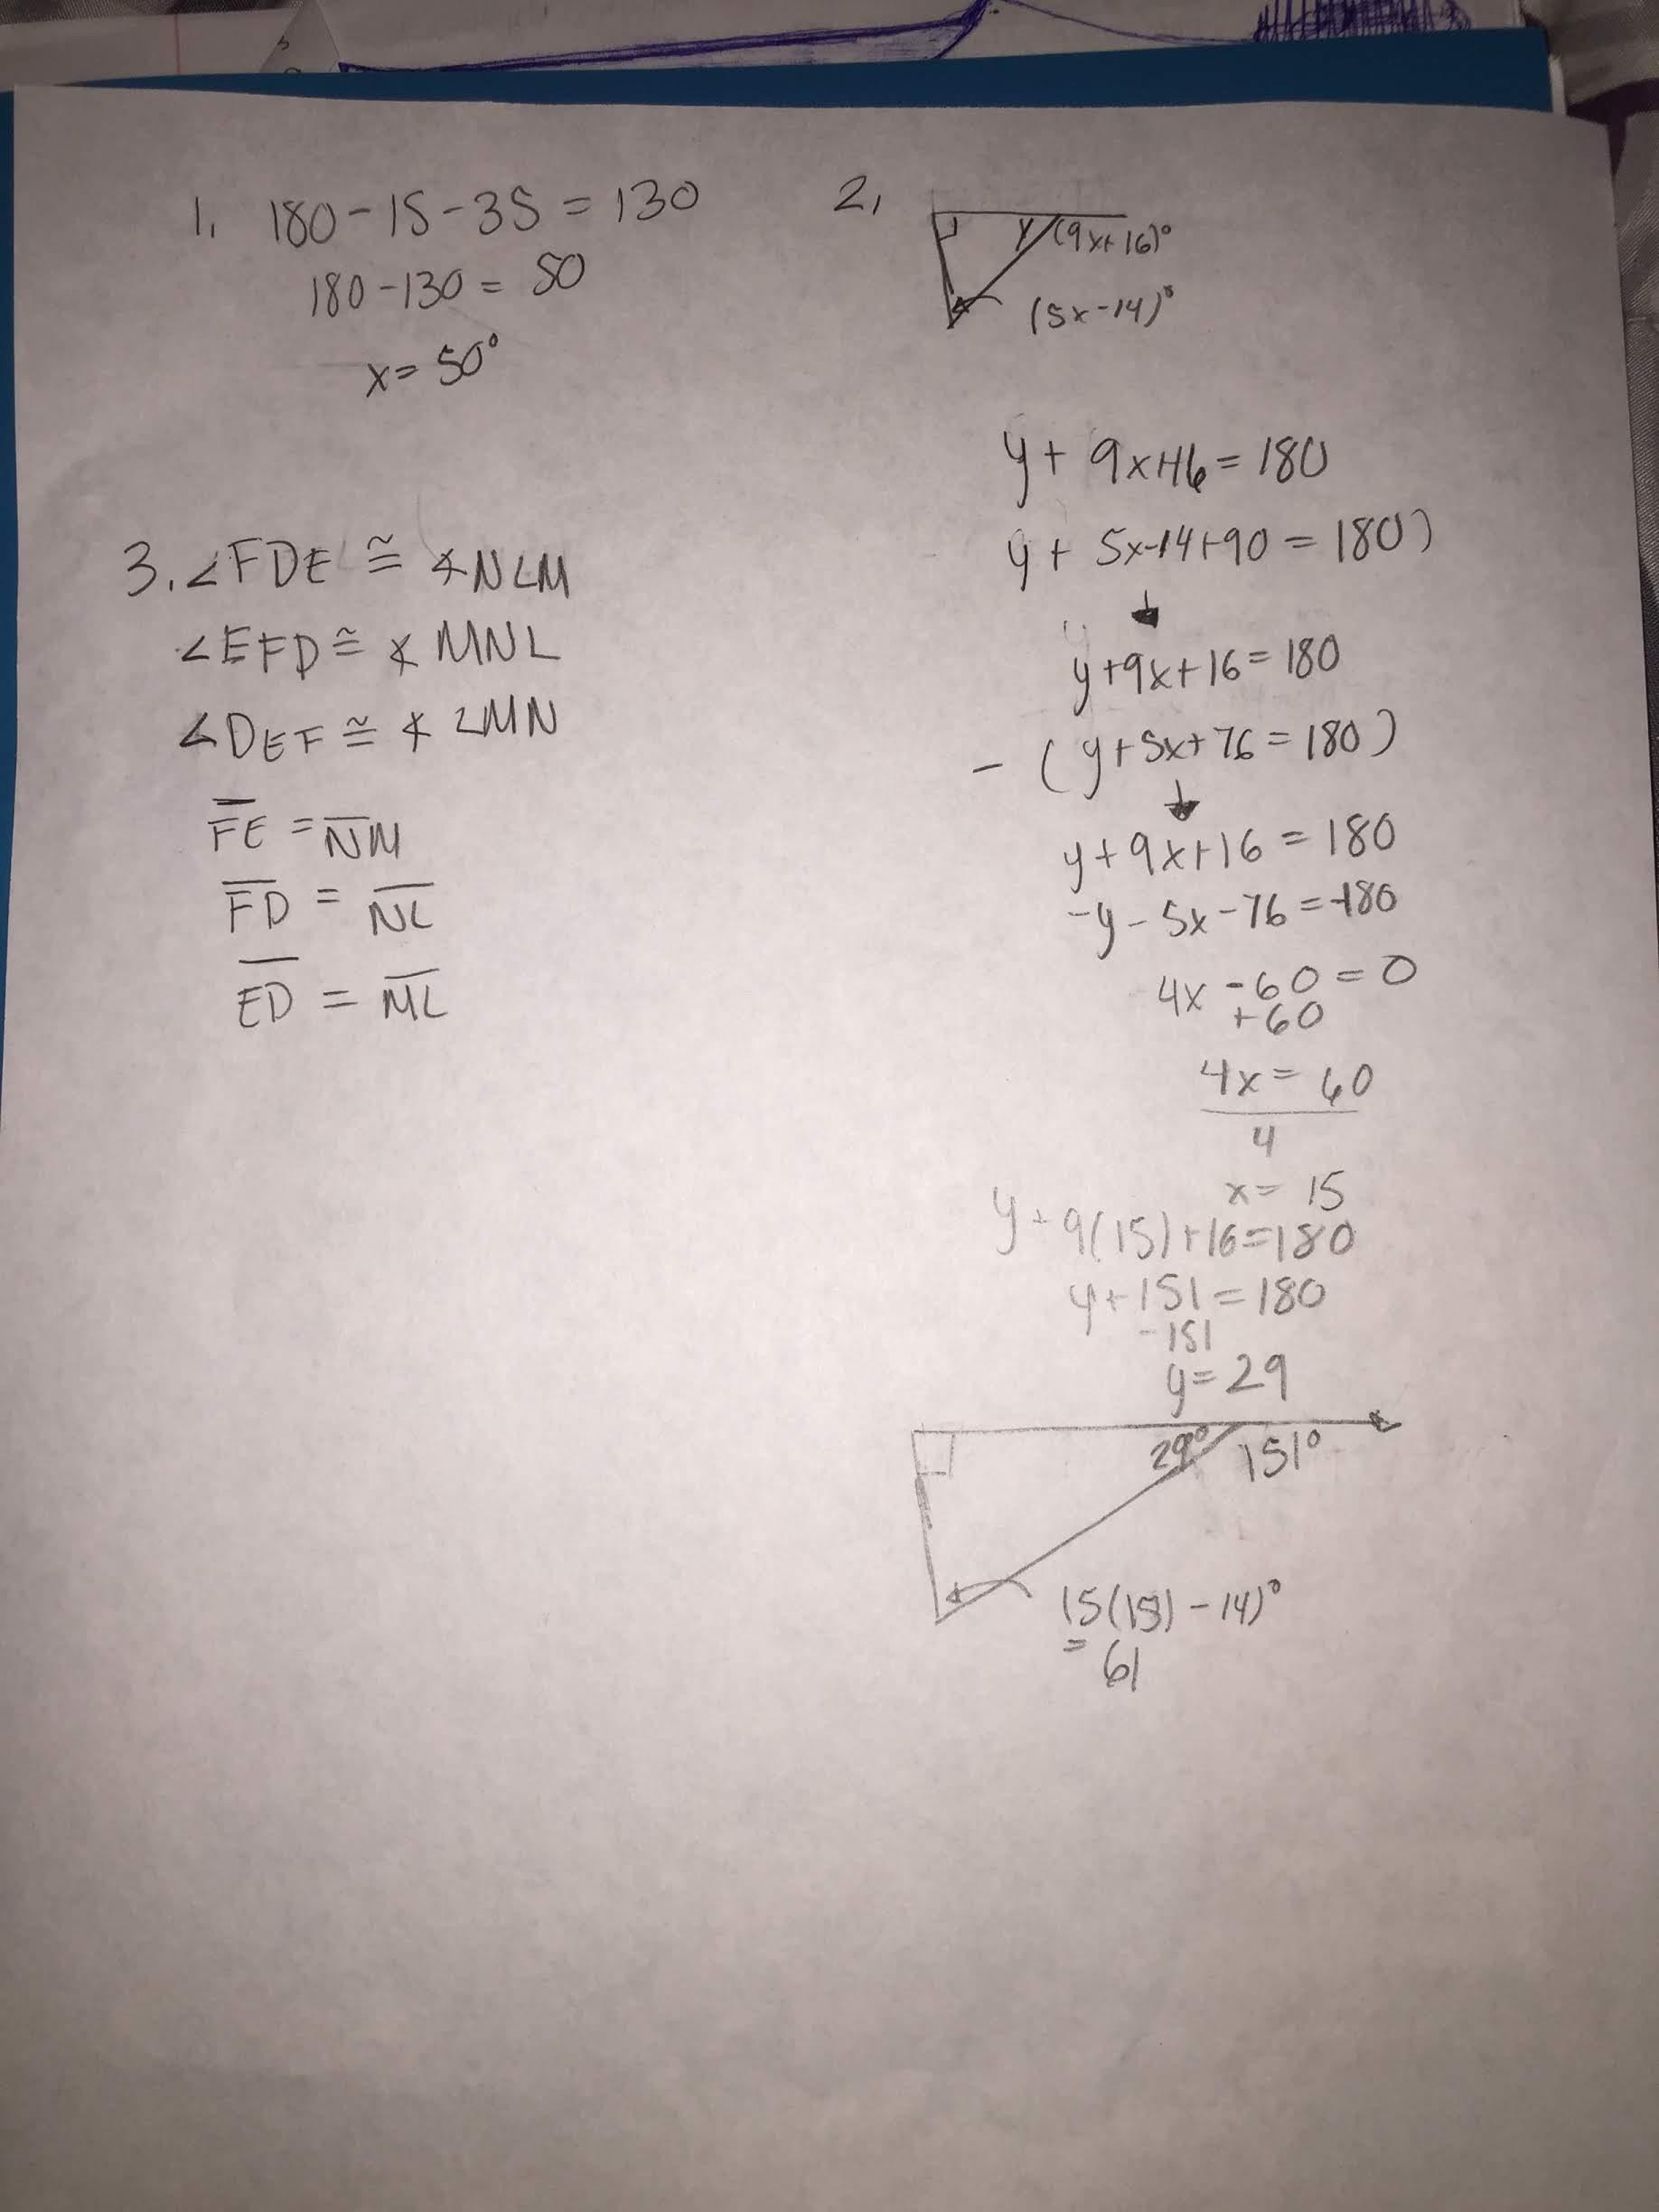 1. 180-15-35 = 130
180-130 = 50
x = 50°
2.
y (9x+16)°
(5x-14)°
y + 9x+16 = 180
y + 5x-14+90 = 180)
y+9x+16 = 180
- (y+5x+76 = 180)
y+9x+16 = 180
-y-5x-76 = -180
4x -60 = 0
+60
4x = 60
4
x = 15
y + 9(15)+16=180
y+151 = 180
-151
y = 29
29° 151°
(5(15) - 14)°
= 61
3. ∠FDE ≅ ∡NLM
∠EFD ≅ ∡MNL
∠DEF ≅ ∡LMN
F̅E̅ = N̅M̅
F̅D̅ = N̅L̅
E̅D̅ = M̅L̅